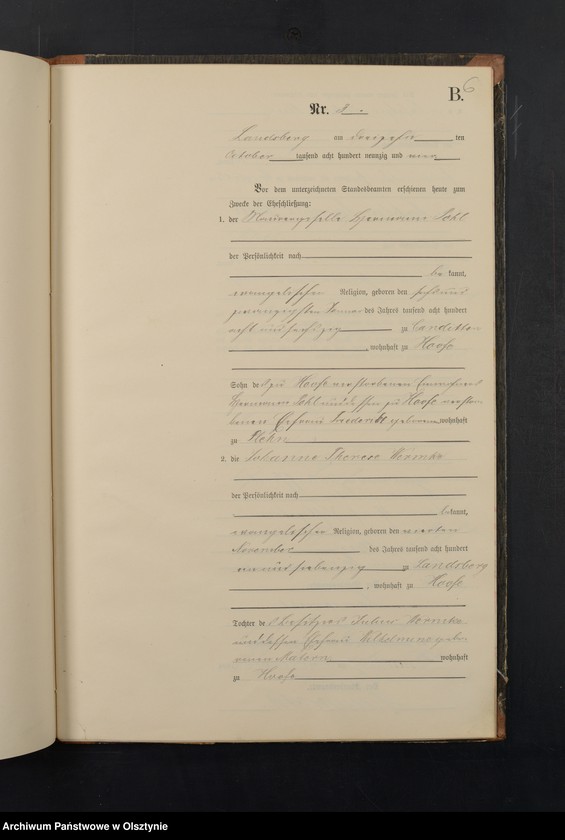 6
B.
Nr. 8.
Landsberg am dreizehn ten
October tausend acht hundert neunzig und vier
Vor dem unterzeichneten Standesbeamten erschienen heute zum
Zwecke der Eheschließung:
1. der Maurergeselle Hermann Pohl
der Persönlichkeit nach
be kannt,
evangelischer Religion, geboren den sechsund
zwanzigsten Januar des Jahres tausend acht hundert
acht und sechszig zu Canditten
, wohnhaft zu Hoofe
Sohn des zu Hoofe verstorbenen Einwohners
Hermann Pohl und dessen zu Hoofe verstor-
benen Ehefrau geborenen wohnhaft
zu
2. die Johanne Therese Wernka
der Persönlichkeit nach
be kannt,
evangelischer Religion, geboren den vierten
November des Jahres tausend acht hundert
ein und siebenzig zu Landsberg
, wohnhaft zu Hoofe
Tochter des Besitzers Julius Wernka
und dessen Ehefrau Wilhelmine gebo-
renen wohnhaft
zu Hoofe
Archiwum Państwowe w Olsztynie